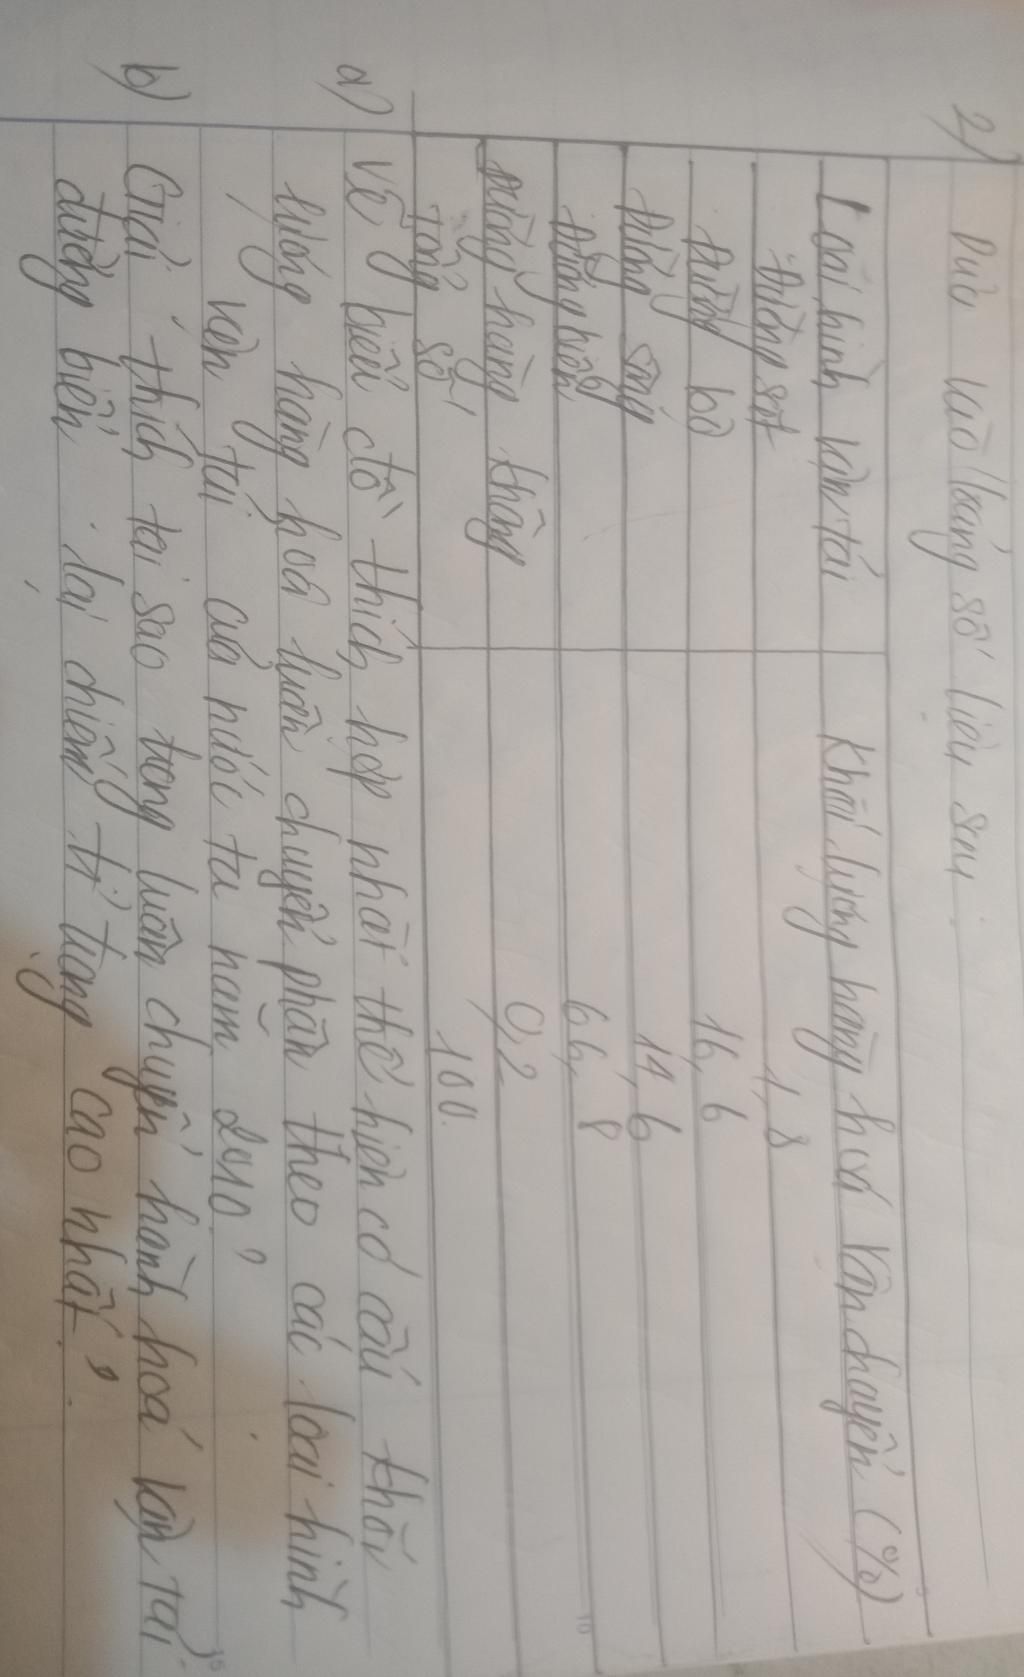 2) Dựa vào bảng số liệu sau
Loại hình vận tải Khối lượng hàng hoá vận chuyển (%)
Đường sắt 1,8
Đường bộ 16,6
Đường sông 14,6
Đường biển 66,8
Đường hàng không 0,2
Tổng số 100.
a) Vẽ biểu đồ thích hợp nhất thể hiện cơ cấu khối
lượng hàng hoá luân chuyển phân theo các loại hình
vận tải của nước ta năm 2010?
b) Giải thích tại sao trong luân chuyển hành hoá vận tải
đường biển lại chiếm tỉ trọng cao nhất?